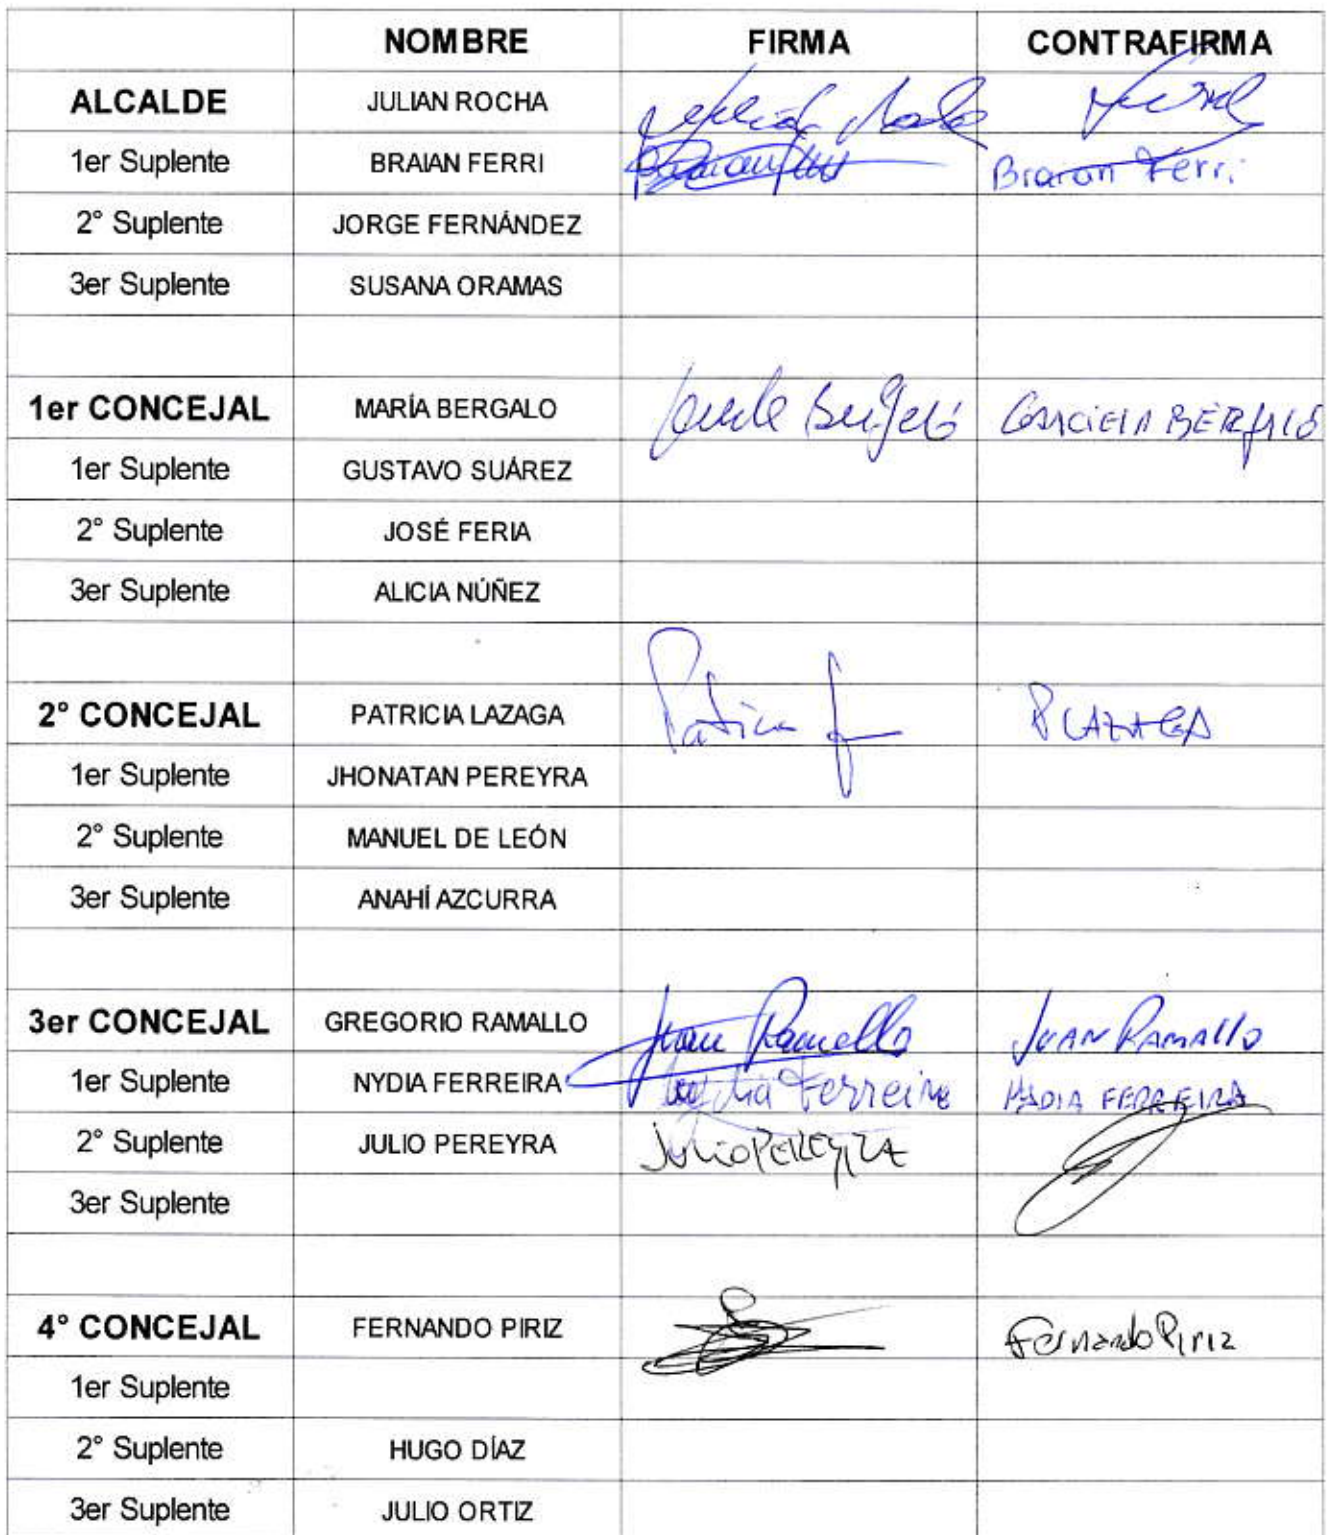 NOMBRE FIRMA CONTRAFIRMA
ALCALDE JULIAN ROCHA
1er Suplente BRAIAN FERRI Braian Ferri
2° Suplente JORGE FERNÁNDEZ
3er Suplente SUSANA ORAMAS
1er CONCEJAL MARÍA BERGALO GRACIELA BERGALO
1er Suplente GUSTAVO SUÁREZ
2° Suplente JOSÉ FERIA
3er Suplente ALICIA NÚÑEZ
2° CONCEJAL PATRICIA LAZAGA P LAZAGA
1er Suplente JHONATAN PEREYRA
2° Suplente MANUEL DE LEÓN
3er Suplente ANAHÍ AZCURRA
3er CONCEJAL GREGORIO RAMALLO Juan Ramallo JUAN RAMALLO
1er Suplente NYDIA FERREIRA Ferreira FERREIRA
2° Suplente JULIO PEREYRA JULIO PEREYRA
3er Suplente
4° CONCEJAL FERNANDO PIRIZ Fernando Piriz
1er Suplente
2° Suplente HUGO DÍAZ
3er Suplente JULIO ORTIZ